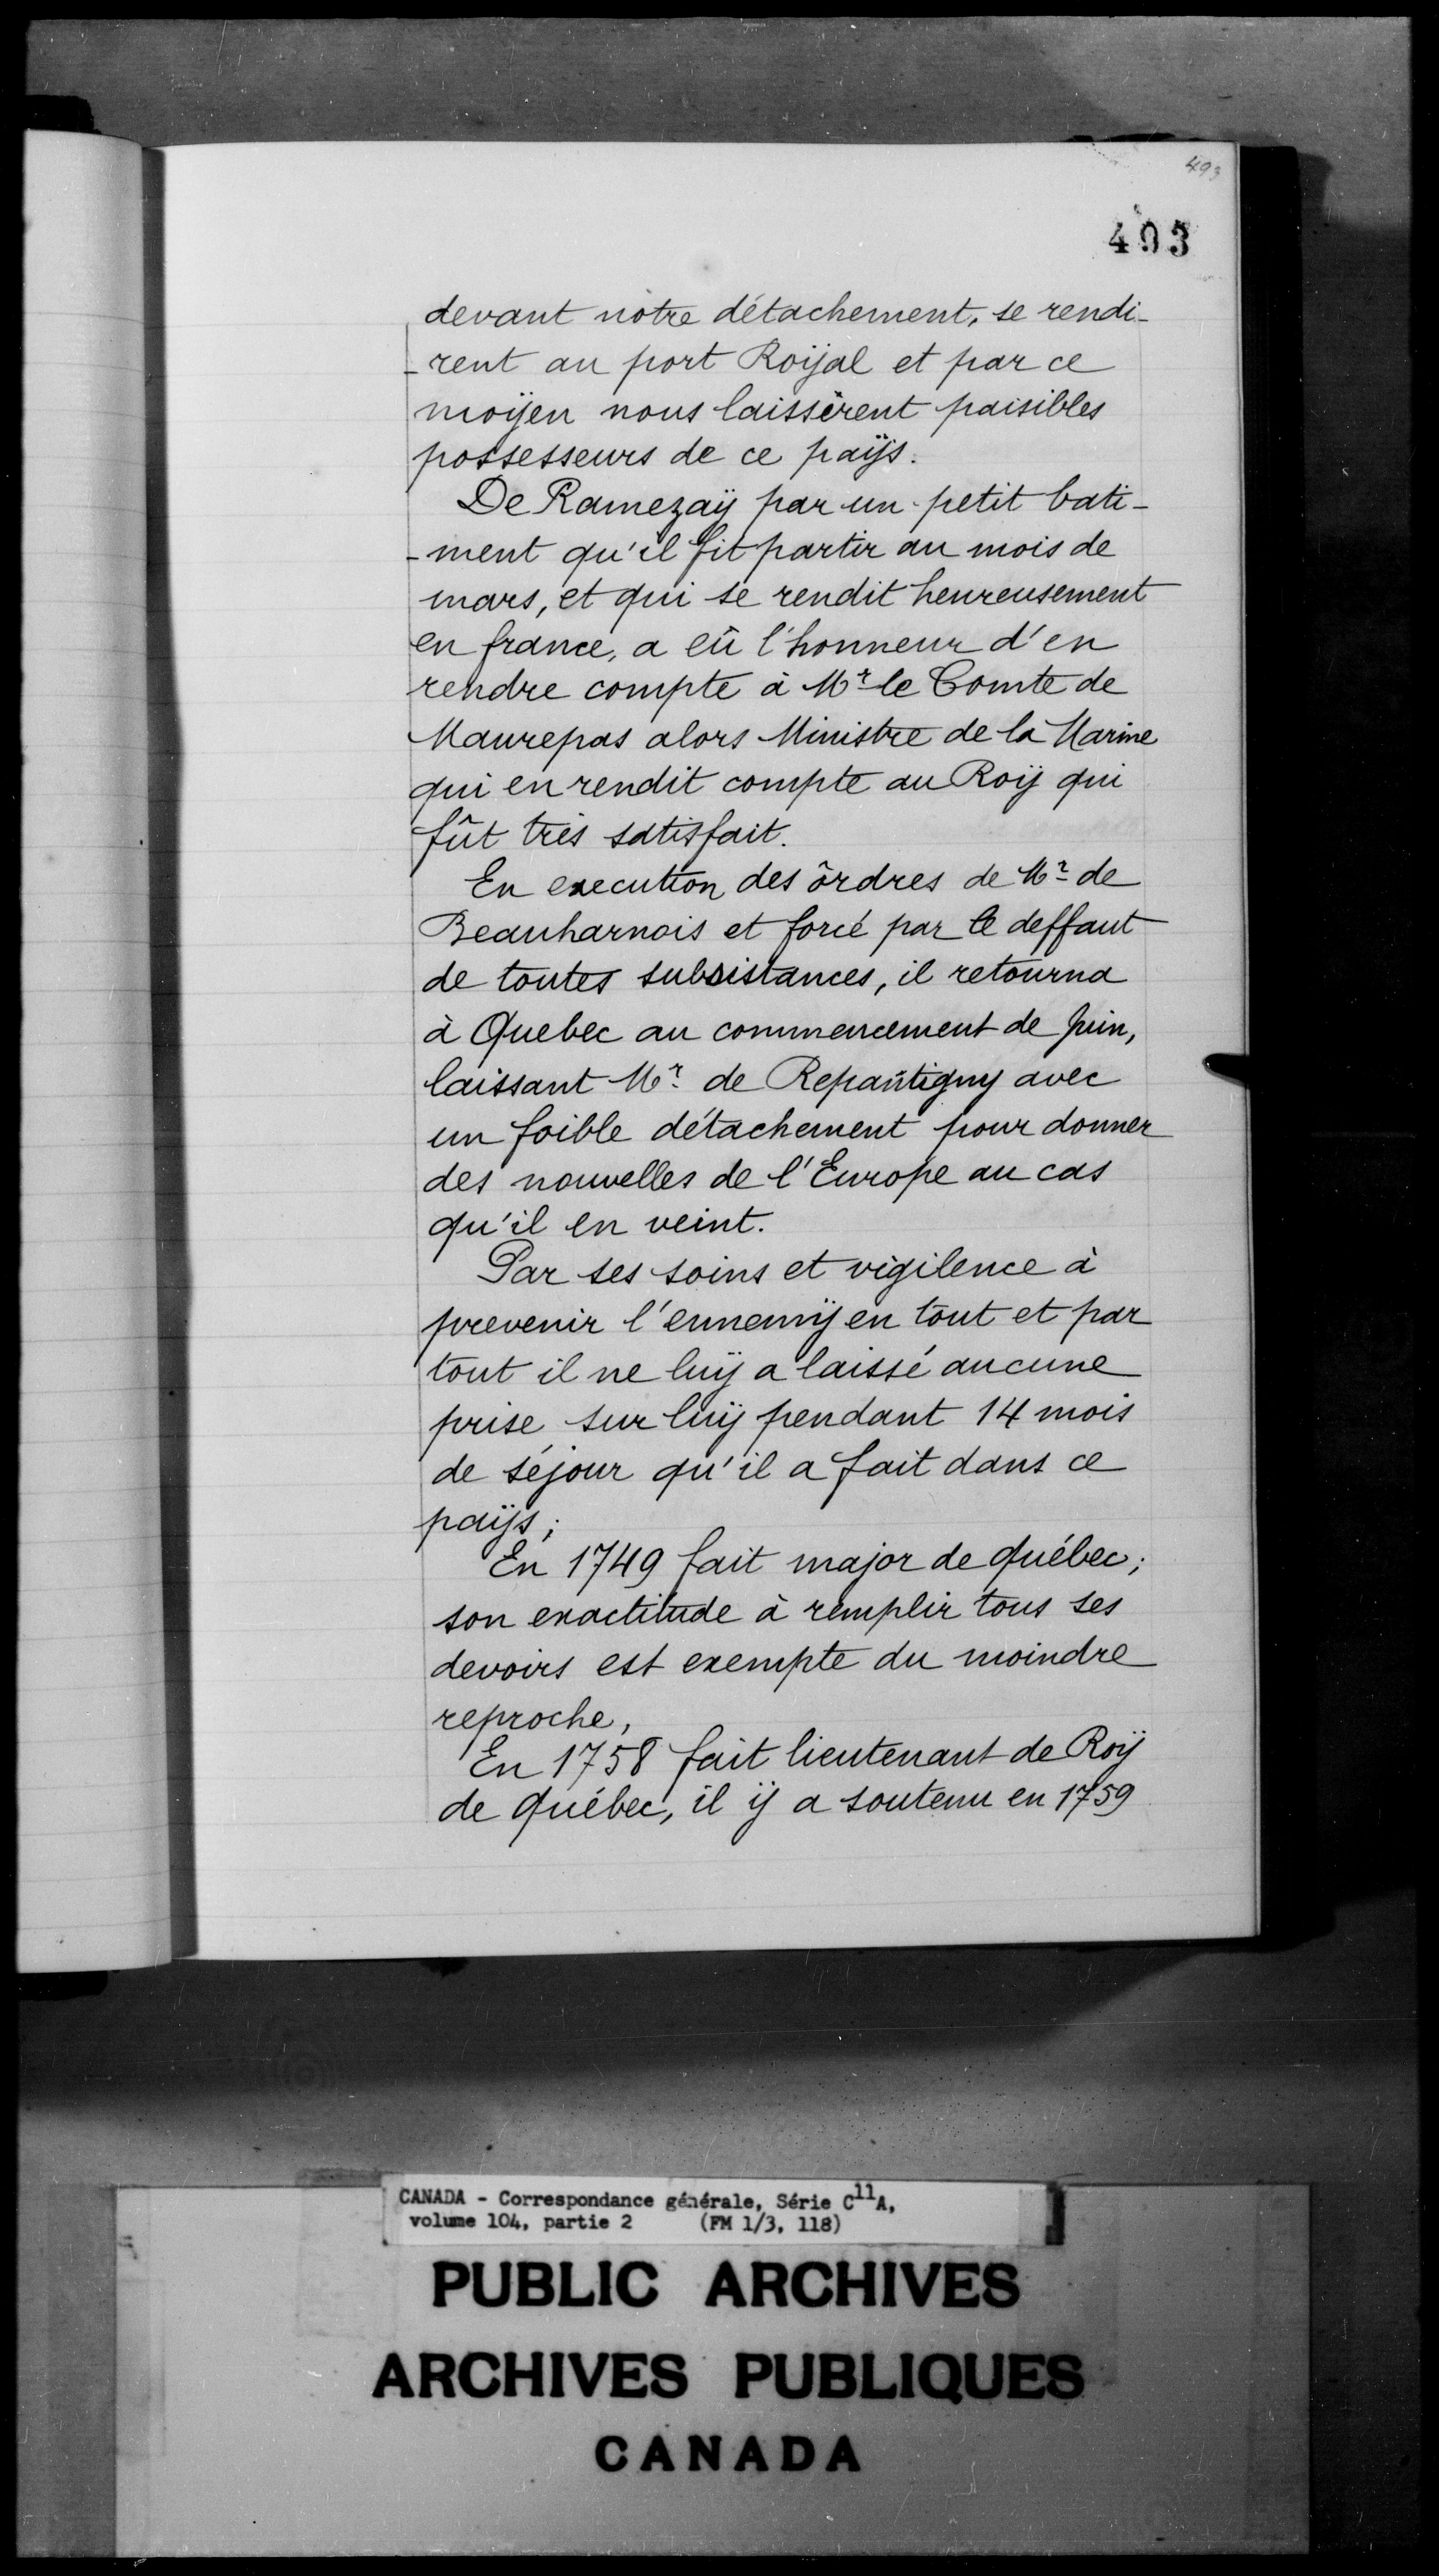 493
493
devant notre détachement, se rendi-
-rent au port Roÿal et par ce
moÿen nous laissèrent paisibles
possesseurs de ce païjs.
De Ramezaÿ par un petit bati-
-ment qu'il fit partir au mois de
mars, et qui se rendit heureusement
en france, a eû l'honneur d'en
rendre compte à Mr le Comte de
Maurepas alors Ministre de la Marine
qui en rendit compte au Roÿ qui
fût très satisfait.
En execution des ôrdres de Mr de
Beauharnois et forcé par le deffaut
de toutes subsistances, il retourna
à Quebec au commencement de juin,
laissant Mr de Repantigny avec
un foible détachement pour donner
des nouvelles de l'Europe au cas
qu'il en veint.
Par ses soins et vigilence à
prevenir l'ennemÿ en tout et par
tout il ne luÿ a laissé aucune
prise sur luÿ pendant 14 mois
de séjour qu'il a fait dans ce
païjs;
En 1749 fait major de québec;
son exactitude à remplir tous ses
devoirs est exempte du moindre
reproche,
En 1758 fait lieutenant de Roÿ
de québec, il ÿ a soutenu en 1759
CANADA - Correspondance générale, Série C11A,
volume 104, partie 2 (FM 1/3, 118)
PUBLIC ARCHIVES
ARCHIVES PUBLIQUES
CANADA